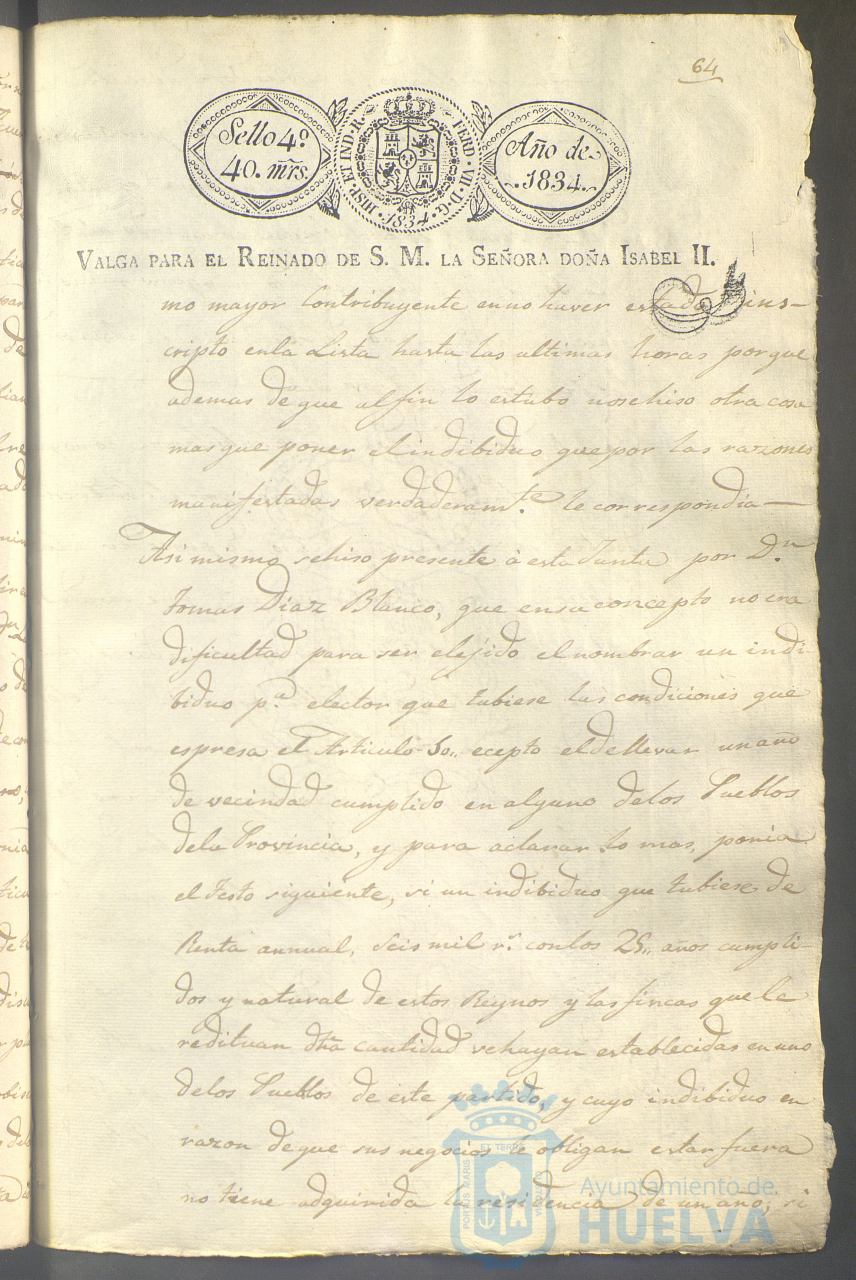 64
Sello 4º
40. mrs.
HISP. ET IND. R. FERD. VII. D. G.
1834
Año de
1834.
VALGA PARA EL REINADO DE S. M. LA SEÑORA DOÑA ISABEL II.
mo mayor Contribuyente en no haver estado ins-
cripto en la Lista hasta las ultimas horas porque
ademas de que al fin lo estubo no se hiso otra cosa
mas que poner el indibiduo que por las razones
manifestadas verdaderamte. le correspondia
Asi mismo se hiso presente á esta Junta por Dn
Tomas Diaz Blanco, que en su concepto no era
dificultad para ser elejido el nombrar un indi-
biduo pa. elector que tubiese las condiciones que
espresa el Articulo 50,, ecepto el de llevar un año
de vecindad cumplido en alguno de los Pueblos
de la Provincia, y para aclararlo mas, ponia
el testo siguiente, si un indibiduo que tubiese de
Renta annual, Seis mil rs. con los 25,, años cumpli-
dos y natural de estos Reynos y las fincas que le
redituan dha cantidad se hayan establecidas en uno
de los Pueblos de este partido, y cuyo indibiduo en
razon de que sus negocios le obligan estar fuera
no tiene adquirida la residencia de un año, si
PORTUS MARIS ET TERRE CUSTODIA
Ayuntamiento de
HUELVA